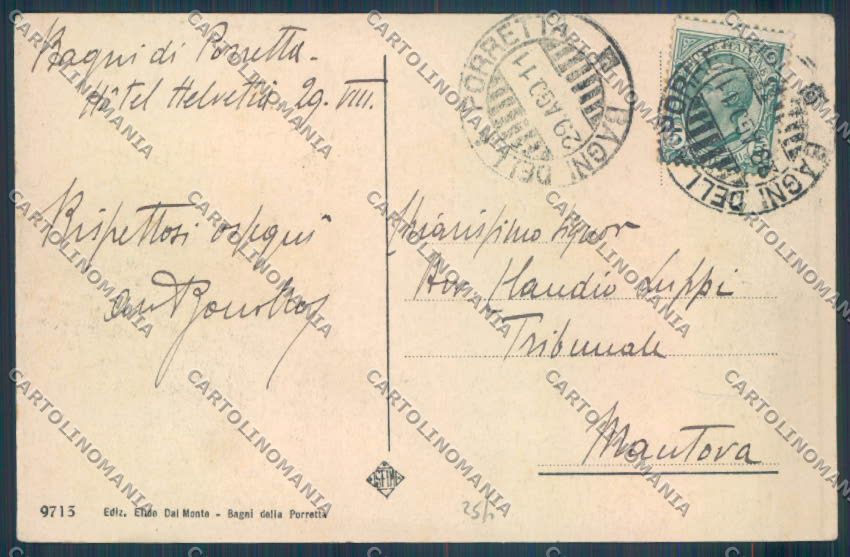 Bagni di Porretta -
Hôtel Helvetia 29. VIII.
Rispettosi ossequi
BAGNI DELLA PORRETTA
29 AGO 11
BAGNI DELLA PORRETTA
POSTE ITALIANE
Chiarissimo signor
Avv. Claudio Luppi
Tribunale
Mantova
9713 Ediz. Elide Dal Monte - Bagni della Porretta
25/-
CARTOLINOMANIA